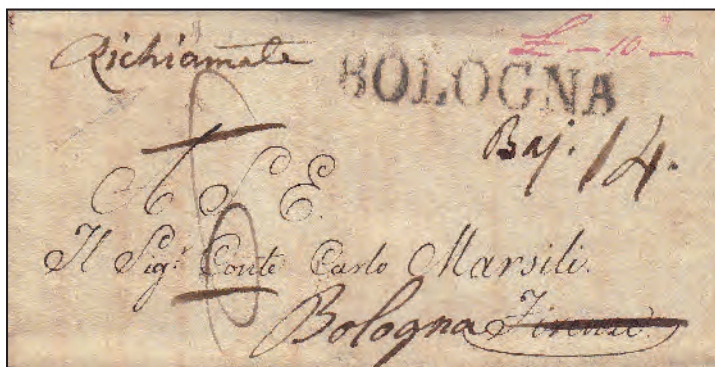 Richiamata
BOLOGNA
10
Baj. 14.
A S E.
Il Sigr. Conte Carlo Marsili.
Bologna Firenze.